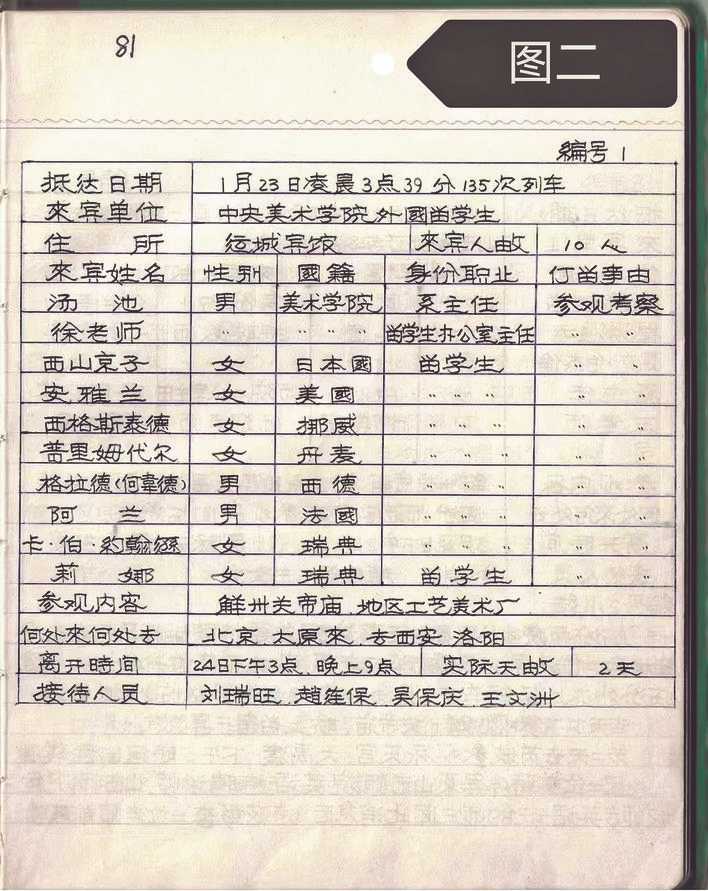 81
图二
编号 1
抵达日期 1月23日凌晨3点39分135次列车
來宾单位 中央美术学院外國留学生
住 所 运城宾馆 來宾人数 10人
來宾姓名 性别 國籍 身份职业 停留事由
汤 池 男 美术学院 系主任 参观考察
徐老师 〃 〃 〃 留学生办公室主任 〃 〃
西山京子 女 日本國 留学生 〃 〃
安雅兰 女 美國 〃 〃 〃 〃 〃
西格斯泰德 女 挪威 〃 〃 〃 〃 〃
普里姆代尔 女 丹麦 〃 〃 〃 〃 〃
格拉德(何韋德) 男 西德 〃 〃 〃 〃 〃
阿 兰 男 法國 〃 〃 〃 〃 〃
卡·伯·约翰 女 瑞典 〃 〃 〃 〃 〃
莉 娜 女 瑞典 留学生 〃 〃
参观内容 解州关帝庙 地区工艺美术厂
何处來何处去 北京.太原來.去西安 洛阳
离开時间 24日下午3点.晚上9点 实际天数 2天
接待人员 刘瑞旺.赵 保.吴保庆.王文洲